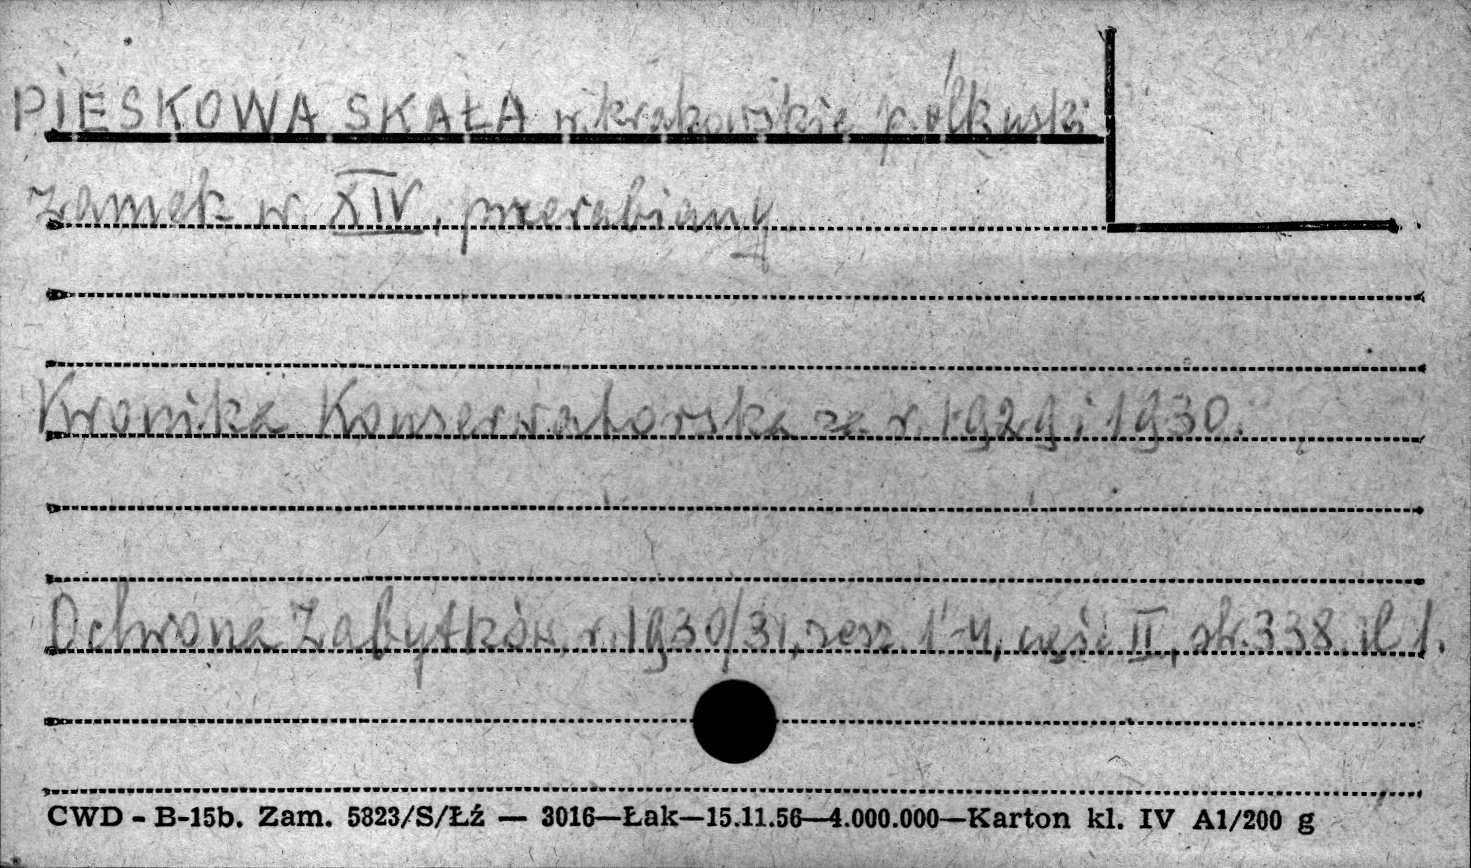 PIESKOWA SKAŁA w. krakowskie p. olkuski
zamek w. XIV, przerabiany
Kronika Konserwatorska za r. 1929 i 1930.
Ochrona Zabytków, r. 1930/31, zesz. 1-4, część II, str. 338, il 1.
CWD - B-15b. Zam. 5823/S/Łź — 3016—Łak—15.11.56—4.000.000—Karton kl. IV A1/200 g